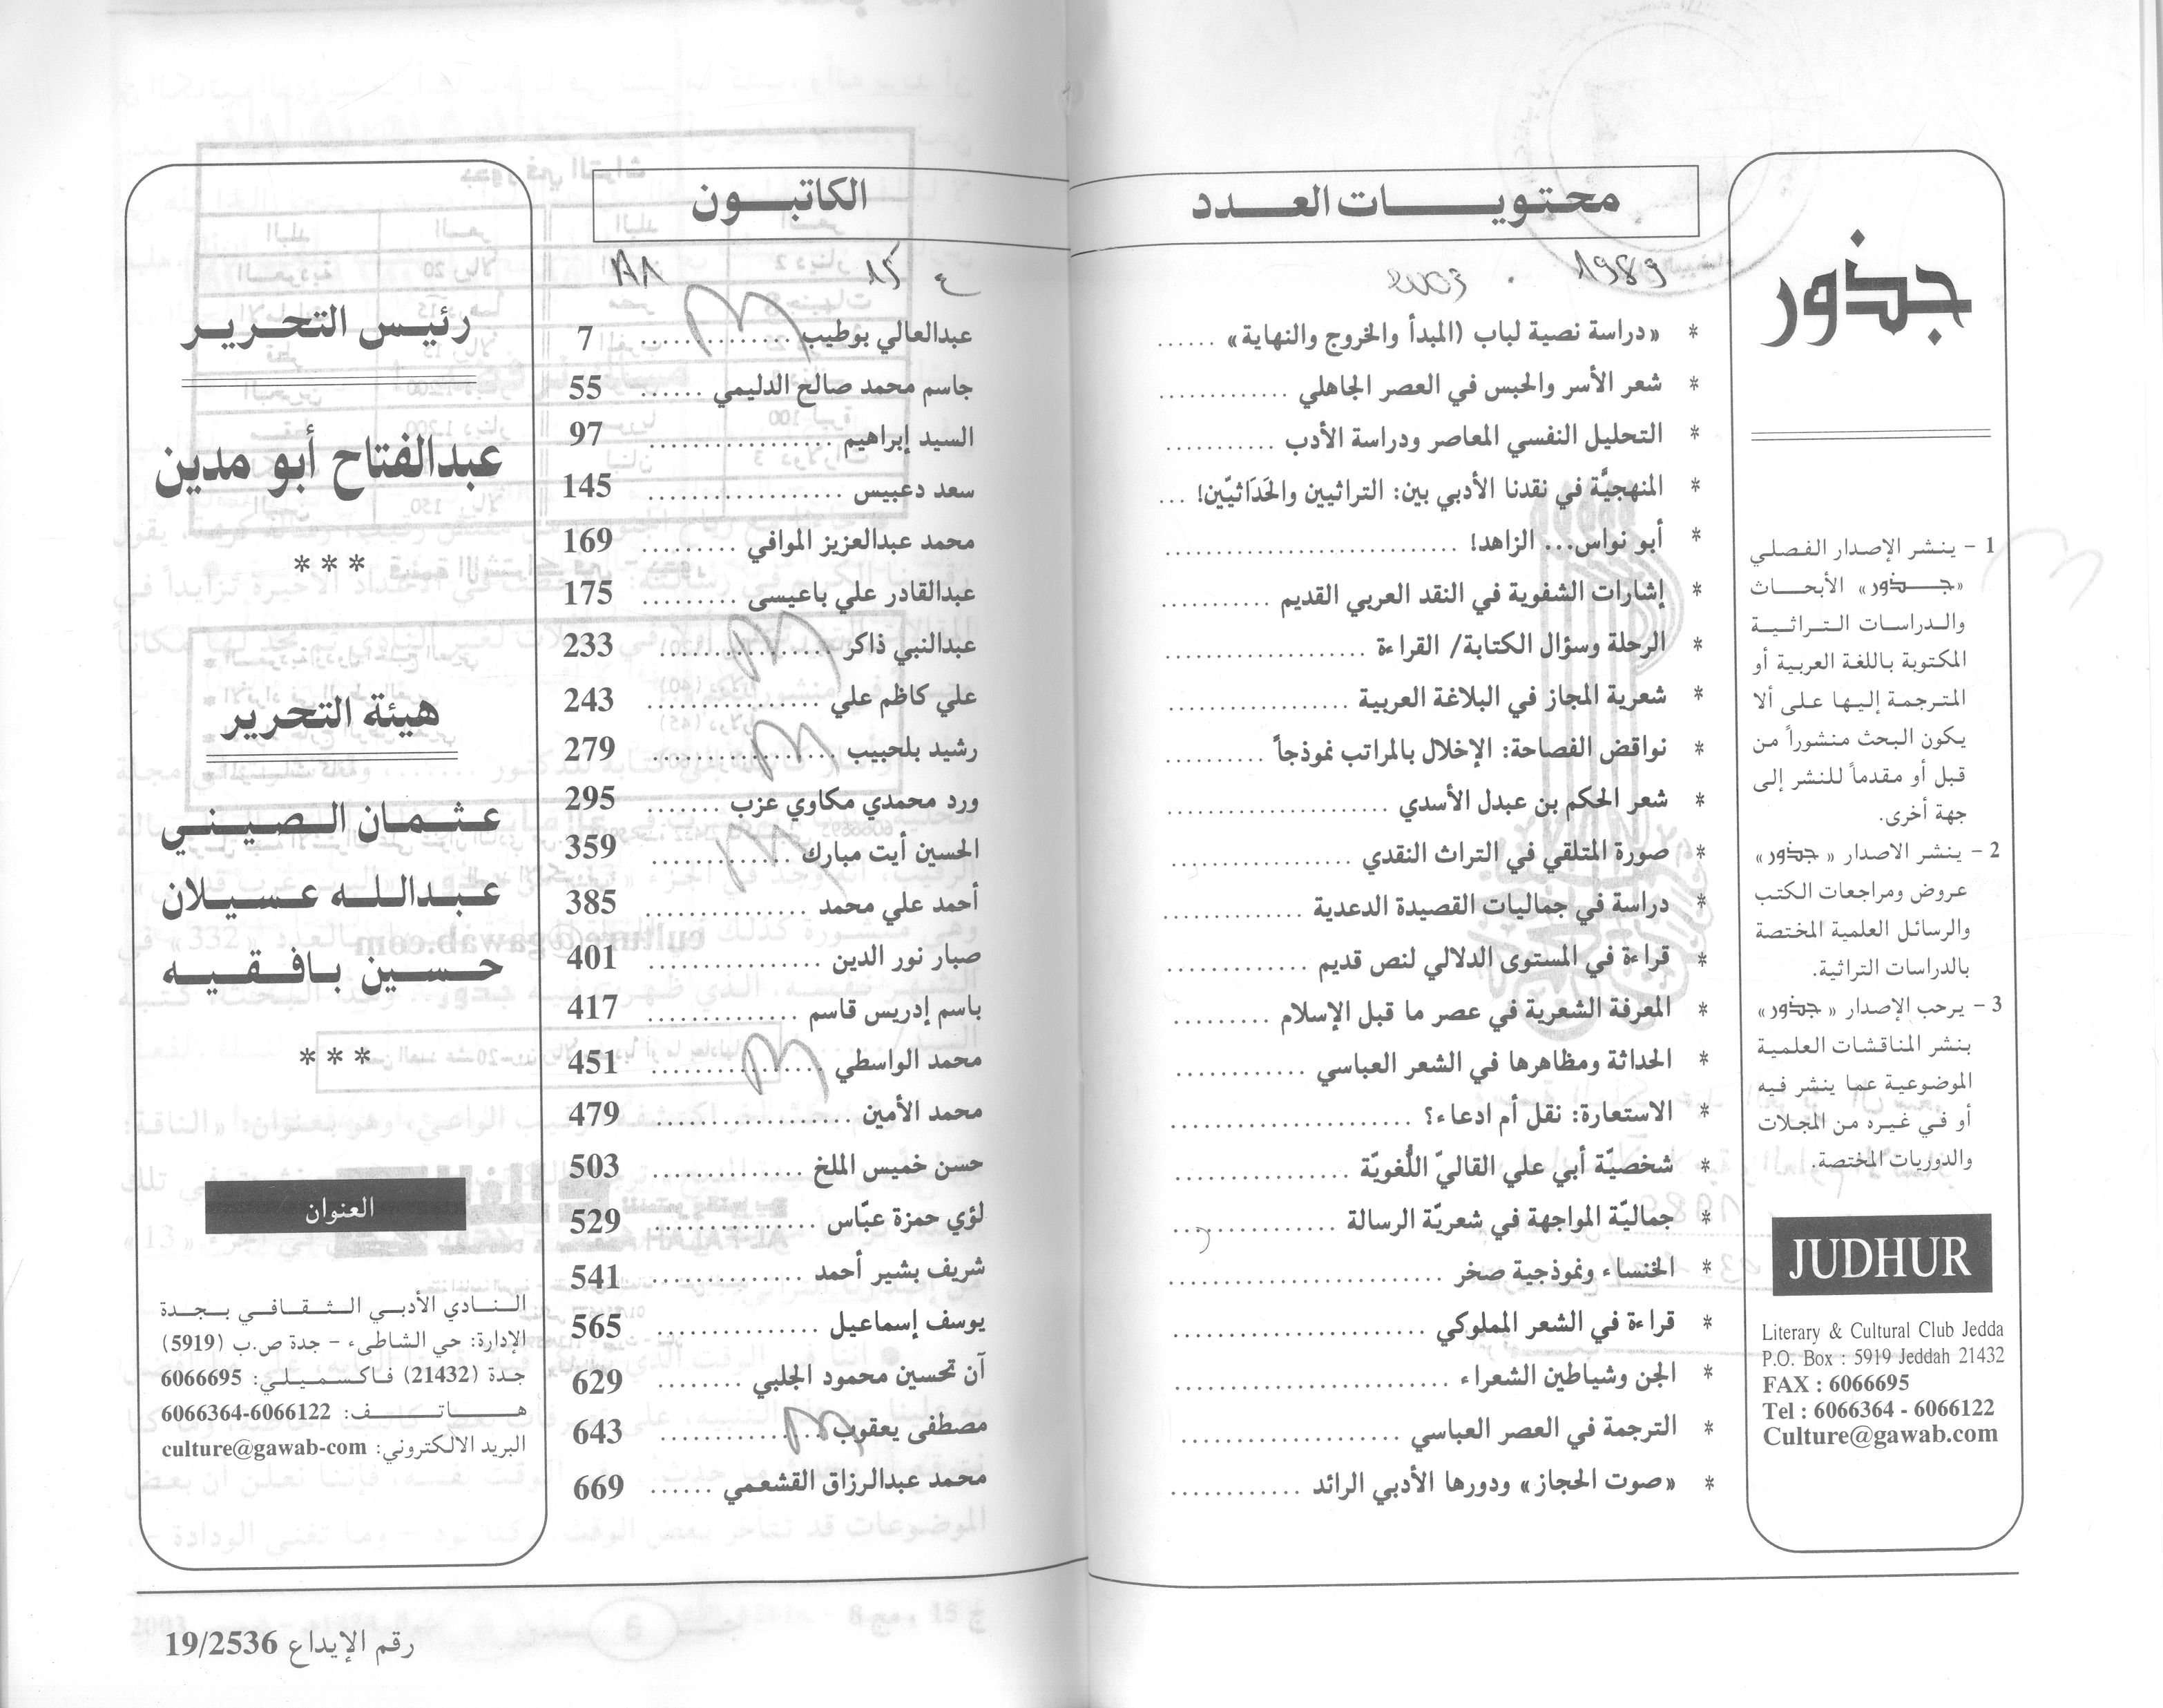 جذور
1 - ينشر الإصدار الفصلي
«جذور» الأبحاث
والدراسات التراثية
المكتوبة باللغة العربية أو
المترجمة إليها على ألا
يكون البحث منشوراً من
قبل أو مقدماً للنشر إلى
جهة أخرى.
2 - ينشر الاصدار «جذور»
عروض ومراجعات الكتب
والرسائل العلمية المختصة
بالدراسات التراثية.
3 - يرحب الإصدار «جذور»
بنشر المناقشات العلمية
الموضوعية عما ينشر فيه
أو في غيره من المجلات
والدوريات المختصة.
JUDHUR
Literary & Cultural Club Jedda
P.O. Box : 5919 Jeddah 21432
FAX : 6066695
Tel : 6066364 - 6066122
Culture@gawab.com
محتويات العدد الكاتبون
1989 2003 ع 15
* «دراسة نصية لباب (المبدأ والخروج والنهاية» ...... عبدالعالي بوطيب .............. 7
* شعر الأسر والحبس في العصر الجاهلي ............. جاسم محمد صالح الدليمي ...... 55
* التحليل النفسي المعاصر ودراسة الأدب ........... السيد إبراهيم ................. 97
* المنهجيَّة في نقدنا الأدبي بين: التراثيين والحَدَاثيّين! ... سعد دعبيس .................. 145
* أبو نواس... الزاهد! ............................ محمد عبدالعزيز الموافي ......... 169
* إشارات الشفوية في النقد العربي القديم ........... عبدالقادر علي باعيسى ......... 175
* الرحلة وسؤال الكتابة/ القراءة ................... عبدالنبي ذاكر ................ 233
* شعرية المجاز في البلاغة العربية ................. علي كاظم علي ................... 243
* نواقض الفصاحة: الإخلال بالمراتب نموذجاً .......... رشيد بلحبيب .................. 279
* شعر الحكم بن عبدل الأسدي ..................... ورد محمدي مكاوي عزب ....... 295
* صورة المتلقي في التراث النقدي ................. الحسين أيت مبارك ............. 359
* دراسة في جماليات القصيدة الدعدية ............. أحمد علي محمد ............... 385
* قراءة في المستوى الدلالي لنص قديم ............. صبار نور الدين ................ 401
* المعرفة الشعرية في عصر ما قبل الإسلام ......... باسم إدريس قاسم .............. 417
* الحداثة ومظاهرها في الشعر العباسي ............ محمد الواسطي ................ 451
* الاستعارة: نقل أم ادعاء؟ ........................ محمد الأمين ................... 479
* شخصيّة أبي علي القاليّ اللُّغويّة ................. حسن خميس الملخ .............. 503
* جماليّة المواجهة في شعريّة الرسالة ............... لؤي حمزة عبّاس ............... 529
* الخنساء ونموذجية صخر .......................... شريف بشير أحمد .............. 541
* قراءة في الشعر المملوكي ........................ يوسف إسماعيل ................ 565
* الجن وشياطين الشعراء .......................... آن تحسين محمود الجلبي ........ 629
* الترجمة في العصر العباسي ..................... مصطفى يعقوب ................ 643
* «صوت الحجاز» ودورها الأدبي الرائد ............. محمد عبدالرزاق القشعمي ...... 669
رئيس التحرير
عبدالفتاح أبو مدين
***
هيئة التحرير
عثمان الصيني
عبدالله عسيلان
حسين بافقيه
***
العنوان
النادي الأدبي الثقافي بجدة
الإدارة: حي الشاطىء - جدة ص.ب (5919)
جدة (21432) فاكسميلي: 6066695
هاتف: 6066122-6066364
البريد الالكتروني: culture@gawab-com
رقم الإيداع 19/2536